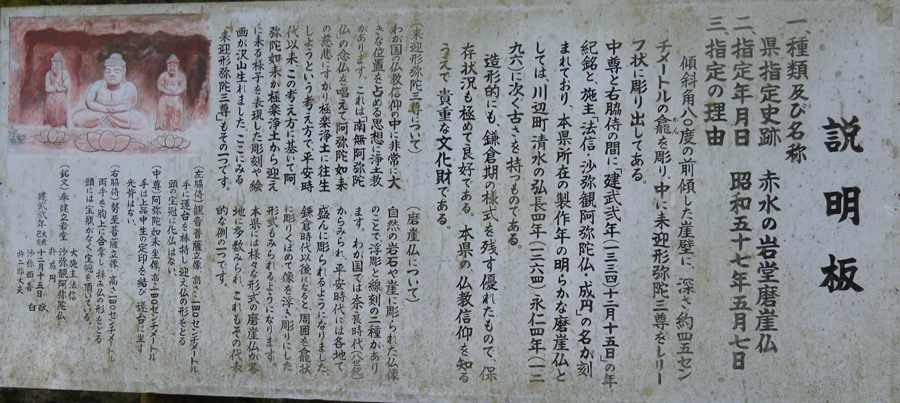 説明板
一、種類及び名称
県指定史跡　赤水の岩堂磨崖仏
二、指定年月日　昭和五十七年五月七日
三、指定の理由
傾斜角八〇度の前傾した崖壁に、深さ約四五セン
チメートルの龕を彫り、中に来迎形弥陀三尊をレリー
がん
フ状に彫り出してある。
中尊と右脇侍の間に「建武弐年(一三三四)十二月十五日」の年
紀銘と、施主「法信・沙弥観阿弥陀仏・成円」の名が刻
まれており、本県所在の製作年の明らかな磨崖仏と
しては、川辺町清水の弘長四年(一二六四)永仁四年(一二
九六)に次ぐ古さを持つものである。
造形的にも、鎌倉期の様式を残す優れたもので、保
存状況も極めて良好である。本県の仏教信仰を知る
うえで貴重な文化財である。
(来迎形弥陀三尊について)
わが国の仏教信仰の中に非常に大
きな位置を占める思想に浄土教
があります。これは南無阿弥陀
仏の念仏を唱えて阿弥陀如来
の慈悲にすがり、極楽浄土に往生
しようという考え方で、平安時
代以来、この考え方に基いて阿
弥陀如来が極楽浄土から迎え
に来る様子を表現した彫刻や絵
画が沢山生れました。ここにみる
「来迎形弥陀三尊」もその一つです。
(磨崖仏について)
自然の岩石や崖に彫られた仏像
のことで浮彫と線刻の二種があり
ます。わが国では奈良時代(八世紀)
からみられ、平安時代には各地で
盛んに彫られるようになりました。
鎌倉時代以後になると、周囲を龕状
に彫りくぼめて像を浮き彫りにした
形式もみられるようになります。
本県には様々な形式の磨崖仏が各
地に多数みられ、これもその代表
的な例の一つです。
(左脇侍)観音菩薩立像、高さ一一〇センチメートル
手に蓮台を捧持し迎え仏の形をとる
頭の宝冠に化仏はない。
(中尊)阿弥陀如来坐像、高さ一四〇センチメートル
手は上品中生の定印を結び蓮台に坐す
光背はない。
(右脇侍)勢至菩薩立像、高さ一一〇センチメートル
両手を胸上に合掌し拝み仏の形をとる
頭には宝瓶がなく宝冠を頂いている。
(銘文)奉建立岩堂
大施主法信
沙弥観阿弥陀仏
并成円
建武弐年
十二月十五日　敬
白